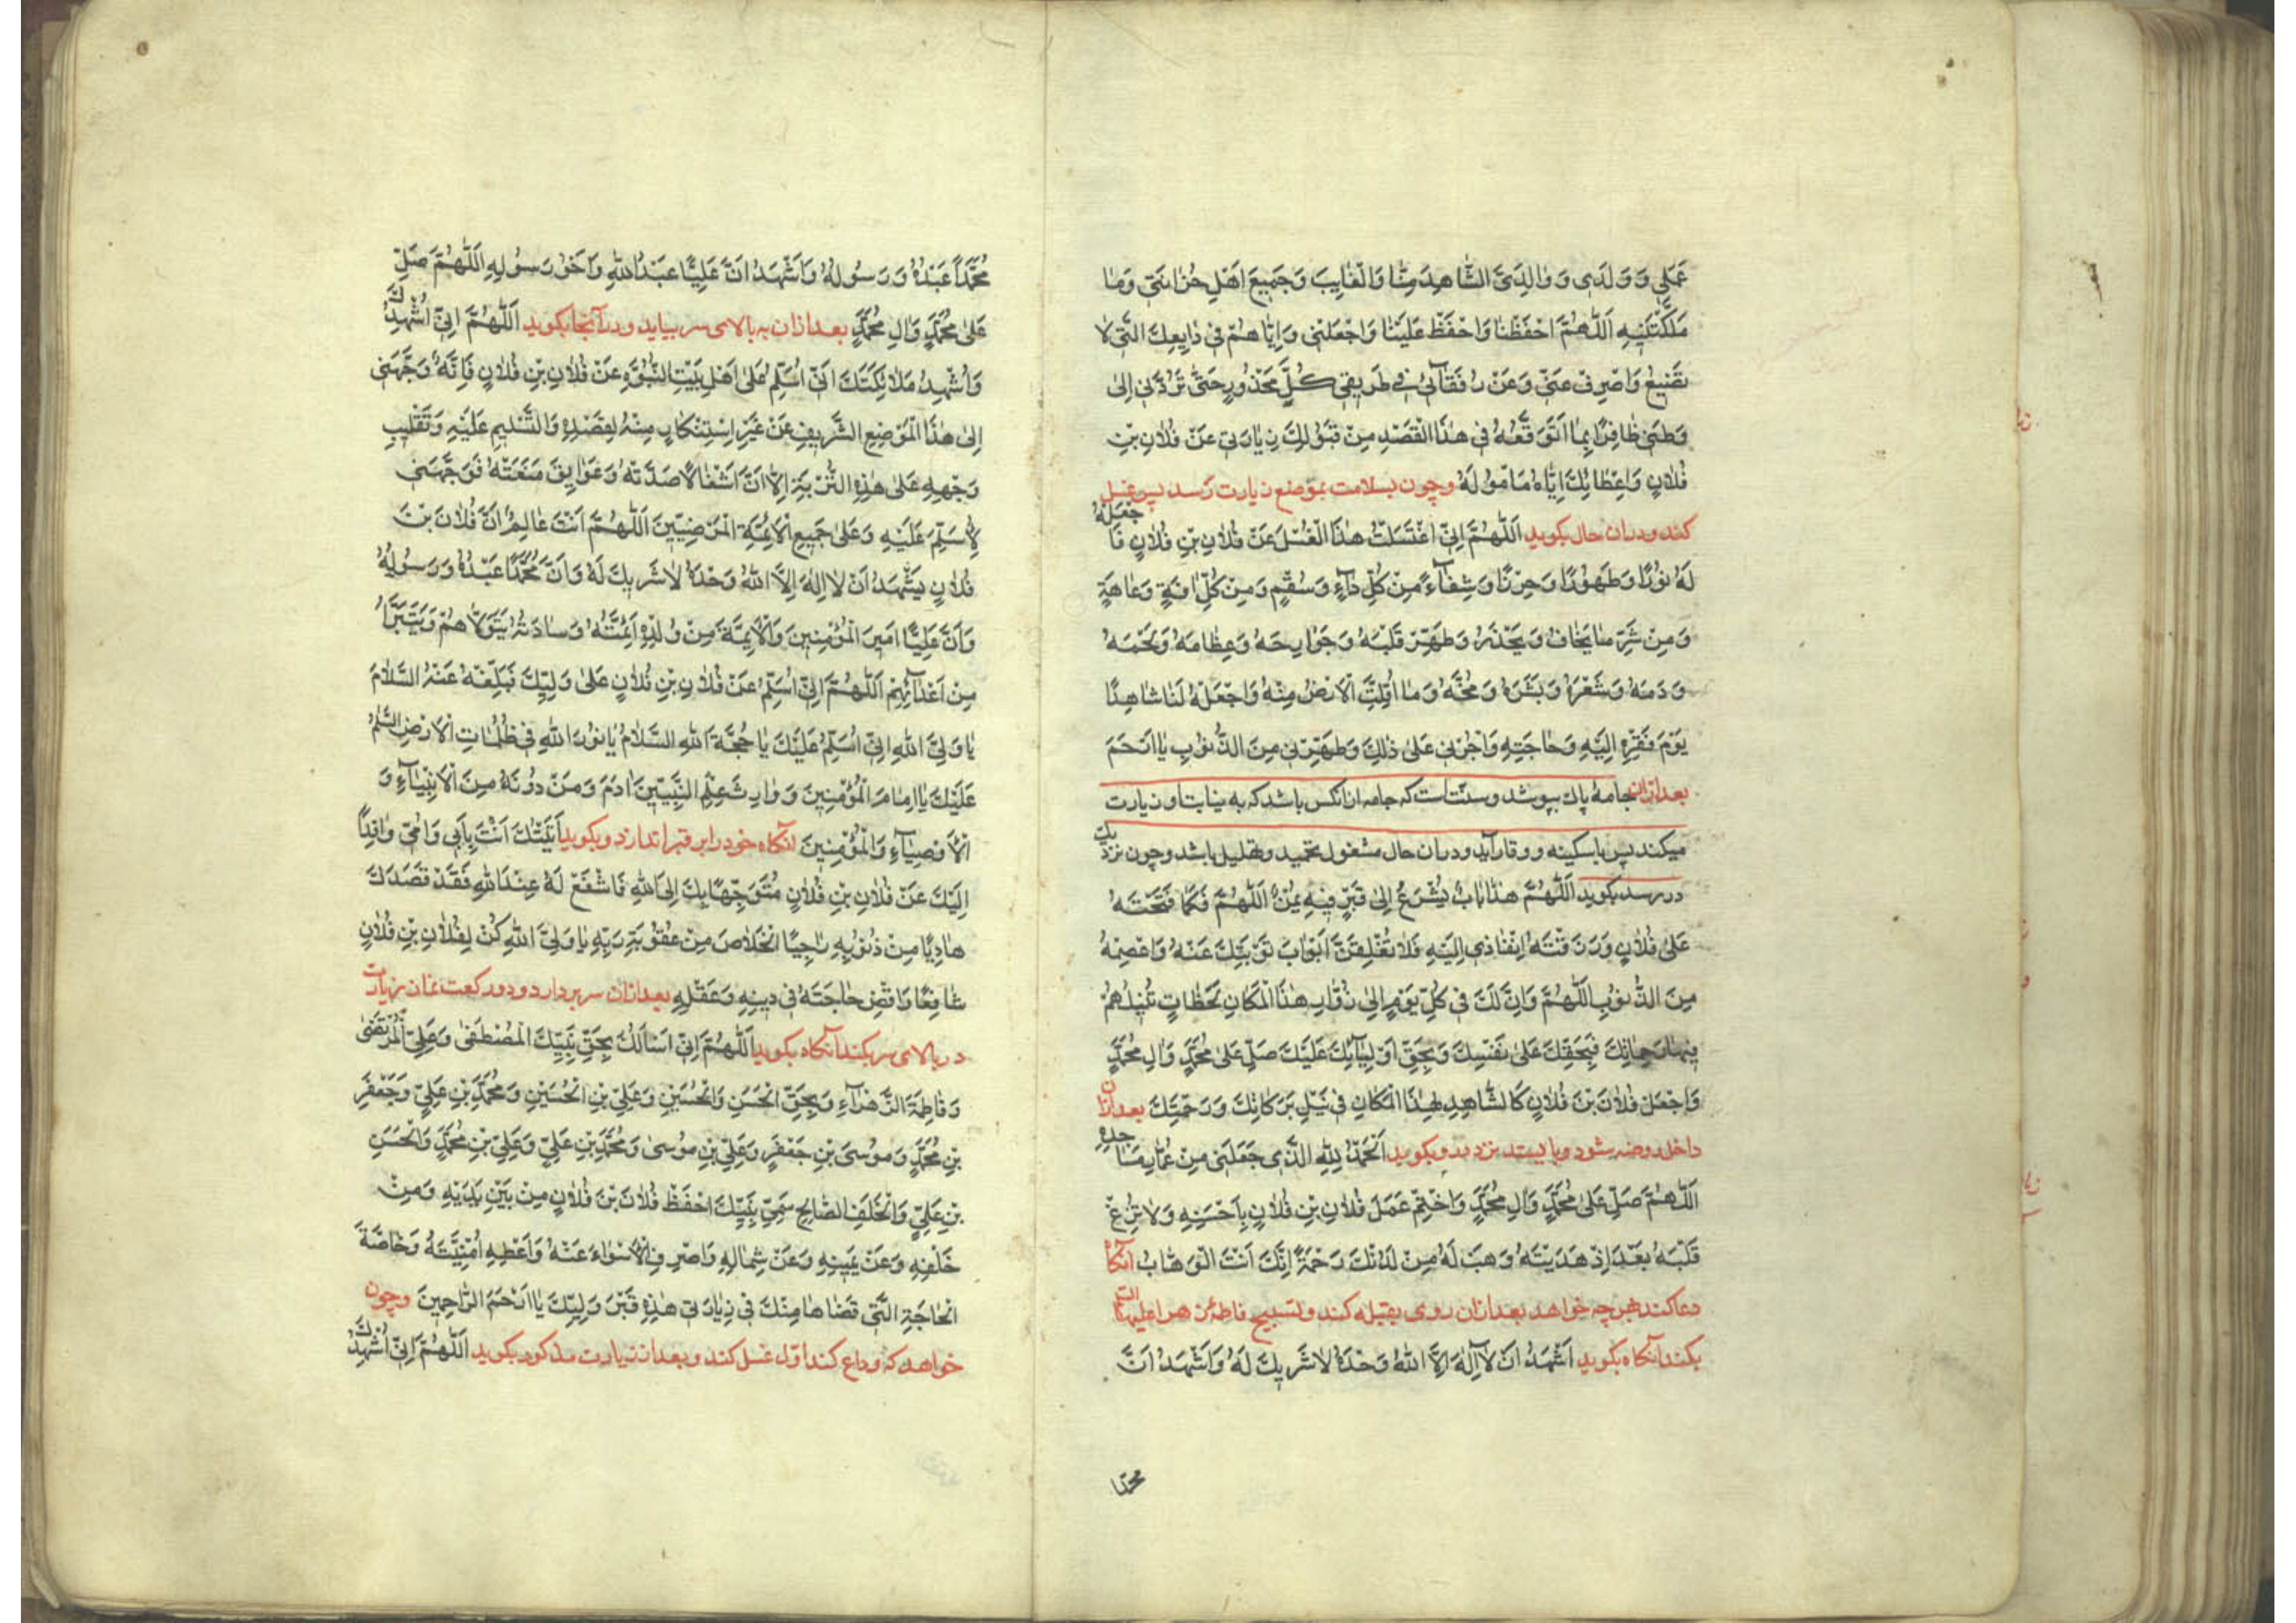 عَمَلِي وَوَلَدِي وَوَالِدَيَّ الشَّاهِدَ مِنَّا وَالْغَايِبَ وَجَمِيعَ اَهْلِ حُزَانَتِي وَمَا
مَلَّكْتَنِيهِ اَللّٰهُمَّ احْفَظْنَا وَاحْفَظْ عَلَيْنَا وَاجْعَلْنِي وَاِيَّاهُمْ فِي دَايِعِكَ الَّتِي لَا
تَضِيعُ وَاصْرِفْ عَنِّي وَعَنْ رُفَقَآئِي فِي طَرِيقِي كُلَّ مَحْذُورٍ حَتّٰى تَرُدَّنِي اِلٰى
وَطَنِي ظَافِرًا بِمَا اَتَوَقَّعُهُ فِي هٰذَا الْقَصْدِ مِنْ قَبُولِكَ زِيَارَتِي عَنْ فُلَانِ بْنِ
فُلَانٍ وَاِعْطَائِكَ اِيَّاهُ مَامُولَهُ وچون بسلامت بموضع زيارت رسد پس غسل
كند ودران حال بكويد اَللّٰهُمَّ اِنِّي اغْتَسَلْتُ هٰذَا الْغُسْلَ عَنْ فُلَانِ بْنِ فُلَانٍ فَاجْعَلْهُ
لَهُ نُورًا وَطَهُورًا وَحِرْزًا وَشِفَآءً مِنْ كُلِّ دَآءٍ وَسُقْمٍ وَمِنْ كُلِّ افَةٍ وَعَاهَةٍ
وَمِنْ شَرِّ مَا يَخَافُ وَيَحْذَرُ وَطَهِّرْ قَلْبَهُ وَجَوَارِحَهُ وَعِظَامَهُ وَلَحْمَهُ
وَدَمَهُ وَشَعْرَهُ وَبَشَرَهُ وَمُخَّهُ وَمَا اَقَلَّتِ الْاَرْضُ مِنْهُ وَاجْعَلْهُ لَنَا شَاهِدًا
يَوْمَ فَقْرِهِ اِلَيْهِ وَحَاجَتِهِ وَاْجُرْنِي عَلٰى ذٰلِكَ وَطَهِّرْنِي مِنَ الذُّنُوبِ يَا اَرْحَمَ
بعد ازان جامهٔ پاك بپوشد وسنّت است كه جامه ازانكس باشد كه به نيابت او زيارت
ميكند پس باسكينه ووقار آيد ودران حال مشغول تحميد وتهليل باشد وچون نزديك
در رسد بكويد اَللّٰهُمَّ هٰذَا بَابٌ يُشْرَعُ اِلٰى قَبْرٍ فِيهِ يُمْنٌ اَللّٰهُمَّ فَكَمَا فَتَحْتَهُ
عَلٰى فُلَانٍ وَرَزَقْتَهُ اِنْفَاذِي اِلَيْهِ فَلَا تُغْلِقَنَّ اَبْوَابَ تَوْبَتِكَ عَنْهُ وَاعْصِمْهُ
مِنَ الذُّنُوبِ اللّٰهُمَّ وَاِنَّ لَكَ فِي كُلِّ يَوْمٍ اِلٰى زُوَّارِ هٰذَا الْمَكَانِ لَحَظَاتٍ تُنِيلُهُمْ
فِيهَا رَحَمَاتِكَ فَبِحَقِّكَ عَلٰى نَفْسِكَ وَبِحَقِّ اَوْلِيَآئِكَ عَلَيْكَ صَلِّ عَلٰى مُحَمَّدٍ وَالِ مُحَمَّدٍ
وَاجْعَلْ فُلَانَ بْنَ فُلَانٍ كَالشَّاهِدِ لِهٰذَا الْمَكَانِ فِي نَيْلِ بَرَكَاتِكَ وَرَحْمَتِكَ بعد ازان
داخل روضه شود وبايستد نزد جده وبكويد اَلْحَمْدُ لِلّٰهِ الَّذِي جَعَلَنِي مِنْ عُمَّارِ مَسَاجِدِهِ
اَللّٰهُمَّ صَلِّ عَلٰى مُحَمَّدٍ وَالِ مُحَمَّدٍ وَاخْتِمْ عَمَلَ فُلَانِ بْنِ فُلَانٍ بِاَحْسَنِهِ وَلَا تُزِغْ
قَلْبَهُ بَعْدَ اِذْ هَدَيْتَهُ وَهَبْ لَهُ مِنْ لَدُنْكَ رَحْمَةً اِنَّكَ اَنْتَ الْوَهَّابُ آنكاه
دعا كند بهرچه خواهد بعد ازان روى بقبله كند وتسبيح فاطمهٔ زهرا عليها السّ
بكند آنكاه بكويد اَشْهَدُ اَنْ لَا اِلٰهَ اِلَّا اللّٰهُ وَحْدَهُ لَا شَرِيكَ لَهُ وَاَشْهَدُ اَنَّ
محمدا
مُحَمَّدًا عَبْدُهُ وَرَسُولُهُ وَاَشْهَدُ اَنَّ عَلِيًّا عَبْدُ اللّٰهِ وَاَخُو رَسُولِهِ اَللّٰهُمَّ صَلِّ
عَلٰى مُحَمَّدٍ وَالِ مُحَمَّدٍ بعد ازان به بالاى سر بيايد ودر آنجا بكويد اَللّٰهُمَّ اِنِّي اُشْهِدُكَ
وَاُشْهِدُ مَلَائِكَتَكَ اَنِّي اُسَلِّمُ عَلٰى اَهْلِ بَيْتِ النُّبُوَّةِ عَنْ فُلَانِ بْنِ فُلَانٍ فَاِنَّهُ وَجَّهَنِي
اِلٰى هٰذَا الْمَوْضِعِ الشَّرِيفِ عَنْ غَيْرِ اسْتِنْكَافٍ مِنْهُ لِقَصْدِهِ وَالتَّسْلِيمِ عَلَيْهِ وَتَقْلِيبِ
وَجْهِهِ عَلٰى هٰذِهِ التُّرْبَةِ اِلَّا اَنَّ اَشْغَالًا صَدَّتْهُ وَعَوَايِقَ مَنَعَتْهُ فَوَجَّهَنِي
لِاُسَلِّمَ عَلَيْهِ وَعَلٰى جَمِيعِ الْاَئِمَّةِ الْمَرْضِيِّينَ اَللّٰهُمَّ اَنْتَ عَالِمٌ اَنَّ فُلَانَ بْنَ
فُلَانٍ يَشْهَدُ اَنْ لَا اِلٰهَ اِلَّا اللّٰهُ وَحْدَهُ لَا شَرِيكَ لَهُ وَاَنَّ مُحَمَّدًا عَبْدُهُ وَرَسُولُهُ
وَاَنَّ عَلِيًّا اَمِيرَ الْمُؤْمِنِينَ وَالْاَئِمَّةَ مِنْ وُلْدِهِ اَئِمَّتُهُ وَسَادَتُهُ يَتَوَلَّاهُمْ وَيَتَبَرَّاُ
مِنْ اَعْدَآئِهِمْ اَللّٰهُمَّ اِنِّي اُسَلِّمُ عَنْ فُلَانِ بْنِ فُلَانٍ عَلٰى وَلِيِّكَ فَبَلِّغْهُ عَنْهُ السَّلَامَ
يَا وَلِيَّ اللّٰهِ اِنِّي اُسَلِّمُ عَلَيْكَ يَا حُجَّةَ اللّٰهِ السَّلَامُ يَا نُورَ اللّٰهِ فِي ظُلُمَاتِ الْاَرْضِ السَّلٰمُ
عَلَيْكَ يَا اِمَامَ الْمُؤْمِنِينَ وَوَارِثَ عِلْمِ النَّبِيِّينَ ادَمَ وَمَنْ دُونَهُ مِنَ الْاَنْبِيَآءِ وَ
الْاَوْصِيَآءِ وَالْمُؤْمِنِينَ آنكاه خود را بر قبر اندازد وبكويد اَتَيْتُكَ اَنْتَ بِاَبِي وَاُمِّي وَافِدًا
اِلَيْكَ عَنْ فُلَانِ بْنِ فُلَانٍ مُتَوَجِّهًا بِكَ اِلَى اللّٰهِ فَاشْفَعْ لَهُ عِنْدَ اللّٰهِ فَقَدْ قَصَدَكَ
هَارِبًا مِنْ ذُنُوبِهِ رَاجِيًا الْخَلَاصَ مِنْ عُقُوبَةِ رَبِّهِ يَا وَلِيَّ اللّٰهِ كُنْ لِفُلَانِ بْنِ فُلَانٍ
شَافِعًا وَاقْضِ حَاجَتَهُ فِي دِينِهِ وَعَقْلِهِ بعد ازان سر بردارد ودو ركعت نماز زيارت
در بالاى سر بكند آنكاه بكويد اَللّٰهُمَّ اِنِّي اَسْاَلُكَ بِحَقِّ نَبِيِّكَ الْمُصْطَفٰى وَعَلِيٍّ الْمُرْتَضٰى
وَفَاطِمَةَ الزَّهْرَآءِ وَبِحَقِّ الْحَسَنِ وَالْحُسَيْنِ وَعَلِيِّ بْنِ الْحُسَيْنِ وَمُحَمَّدِ بْنِ عَلِيٍّ وَجَعْفَرِ
بْنِ مُحَمَّدٍ وَمُوسَى بْنِ جَعْفَرٍ وَعَلِيِّ بْنِ مُوسٰى وَمُحَمَّدِ بْنِ عَلِيٍّ وَعَلِيِّ بْنِ مُحَمَّدٍ وَالْحَسَنِ
بْنِ عَلِيٍّ وَالْخَلَفِ الصَّالِحِ سَمِيِّ نَبِيِّكَ احْفَظْ فُلَانَ بْنَ فُلَانٍ مِنْ بَيْنِ يَدَيْهِ وَمِنْ
خَلْفِهِ وَعَنْ يَمِينِهِ وَعَنْ شِمَالِهِ وَاصْرِفِ الْاَسْوَاءَ عَنْهُ وَاَعْطِهِ اُمْنِيَّتَهُ وَخَاصَّةَ
الْحَاجَةِ الَّتِي قَضَاهَا مِنْكَ فِي زِيَارَتِي هٰذِهِ قَبْرَ وَلِيِّكَ يَا اَرْحَمَ الرَّاحِمِينَ وچون
خواهد كه وداع كند اوّل غسل كند وبعد از زيارت مذكور بكويد اَللّٰهُمَّ اِنِّي اُشْهِدُكَ